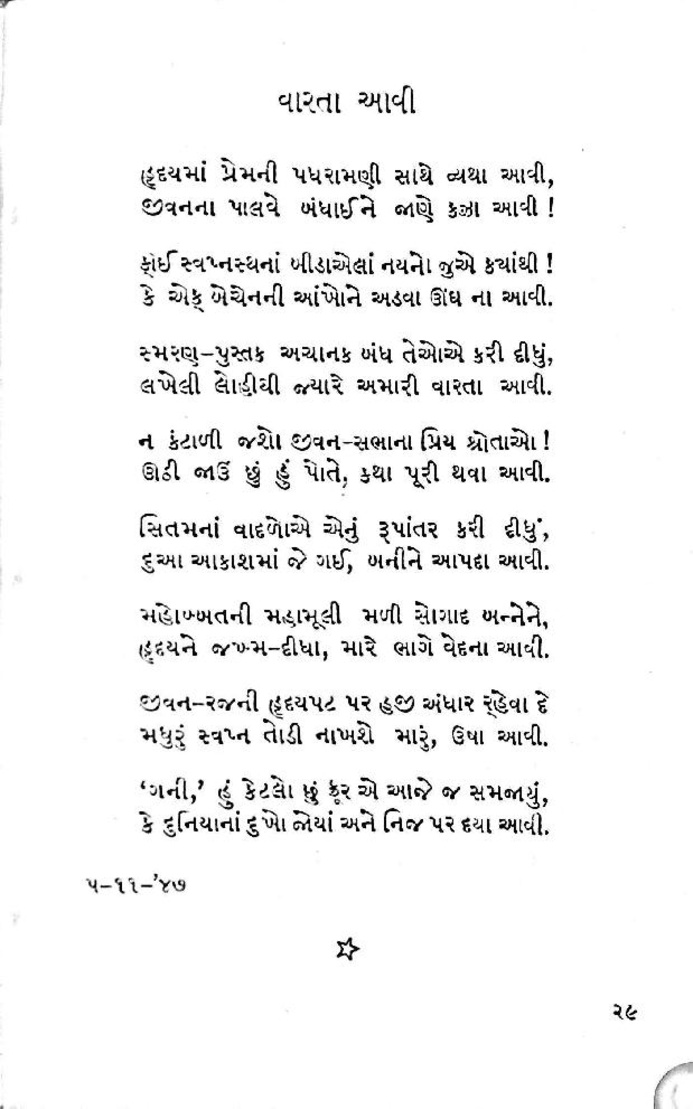 વારતા આવી
હૃદયમાં પ્રેમની પધરામણી સાથે વ્યથા આવી,
જીવનના પાલવે બંધાઈને જાણે કઝા આવી !
કોઈ સ્વપ્નસ્થનાં બીડાએલાં નયનો જુએ ક્યાંથી !
કે એક બેચેનની આંખોને અડવા ઊંઘ ના આવી.
સ્મરણ–પુસ્તક અચાનક બંધ તેઓએ કરી દીધું,
લખેલી લોહીથી જ્યારે અમારી વારતા આવી.
ન કંટાળી જશો જીવન–સભાના પ્રિય શ્રોતાઓ !
ઊઠી જાઉં છું હું પોતે, કથા પૂરી થવા આવી.
સિતમનાં વાદળોએ એનું રૂપાંતર કરી દીધું,
દુઆ આકાશમાં જે ગઈ, બનીને આપદા આવી.
મહોબ્બતની મહામૂલી મળી સોગાદ બન્નેને,
હૃદયને જખ્મ–દીધા, મારે ભાગે વેદના આવી.
જીવન–રજની હૃદયપટ પર હજી અંધાર ર્‌હેવા દે
મધુરું સ્વપ્ન તોડી નાખશે મારું, ઉષા આવી.
‘ગની,’ હું કેટલો છું ક્રૂર એ આજે જ સમજાયું,
કે દુનિયાનાં દુખો જોયાં અને નિજ પર દયા આવી.
૫–૧૧–’૪૭
૨૯